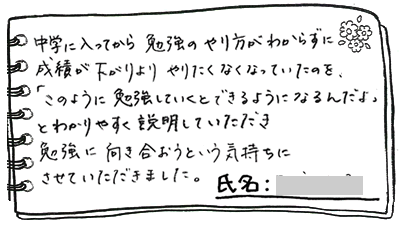 中学に入ってから 勉強の やり方が わからずに
成績が 下がりより やりたくなくなっていたのを、
「このように 勉強していくとできるように なるんだよ」
とわかりやすく 説明していただき
勉強に 向き合おうという 気持ちに
させていただきました。
氏名：